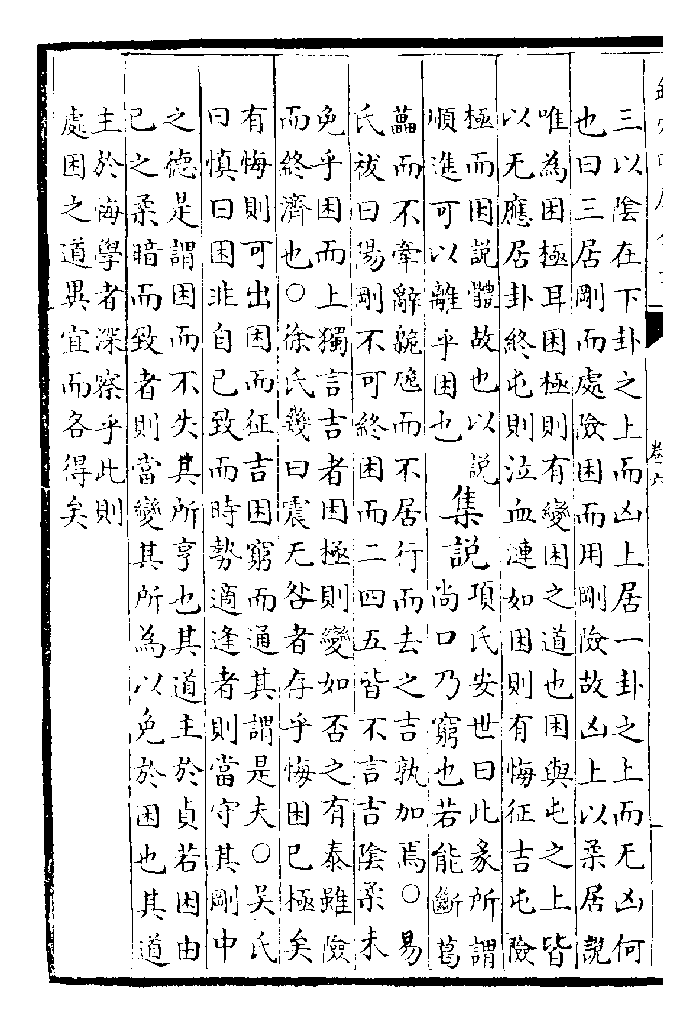 卷六
三以陰在下卦之上而凶上居一卦之上而无凶何
也曰三居剛而處險困而用剛險故凶上以柔居說
唯為困極耳困極則有變困之道也困與屯之上皆
以无應居卦終屯則泣血漣如困則有悔征吉屯險
極而困說體故也以說
順進可以離乎困也
集說
項氏安世曰此彖所謂
尚口乃窮也若能斷葛
藟而不牽辭臲卼而不居行而去之吉孰加焉○易
氏祓曰陽剛不可終困而二四五皆不言吉陰柔未
免乎困而上獨言吉者困極則變如否之有泰雖險
而終濟也○徐氏幾曰震无咎者存乎悔困已極矣
有悔則可出困而征吉困窮而通其謂是夫○吳氏
曰慎曰困非自己致而時勢適逢者則當守其剛中
之德是謂困而不失其所亨也其道主於貞若困由
己之柔暗而致者則當變其所為以免於困也其道
主於悔學者深察乎此則
處困之道異宜而各得矣